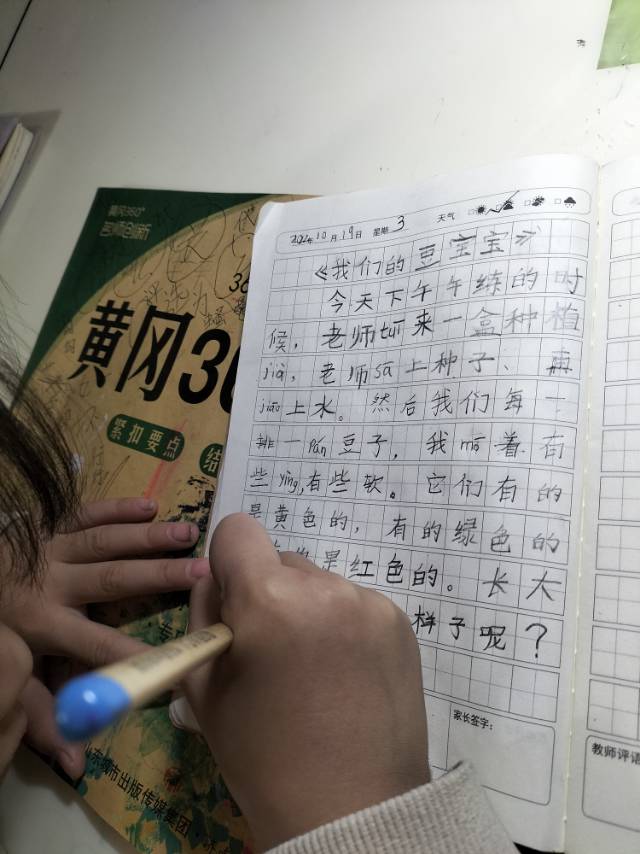 黄冈360°
名师创新
黄冈36
紧扣要点
城市出版传媒集团
2022年10月19日 星期 3 天气
《我们的豆宝宝》
今天下午午练的时
候，老师tuī来一盒种植
jiā，老师sā上种子、再
jiāo上水。然后我们每一
排一pán豆子，我mō着有
些yìng，有些软。它们有的
是黄色的，有的绿色的
是红色的。长大
样子呢？
家长签字：
教师评语